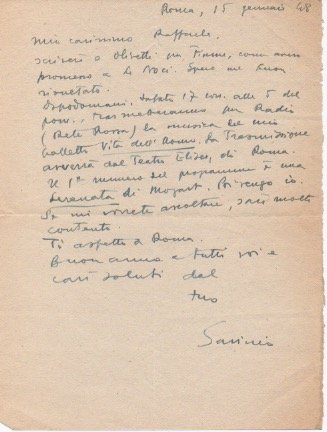 Roma, 15 gennaio 48
Mio carissimo Raffaele,
scriverò a Olivetti per Fiume, come avevo
promesso a Li Noci. Spero un buon
risultato.
Dopodomani, sabato 17 corr. alle 5 del
pom., trasmetteranno per Radio
(Rete Rossa) la musica del mio
balletto Vita dell'Uomo. La trasmissione
avverrà dal Teatro Eliseo, di Roma.
Il 1° numero del programma è una
Serenata di Mozart. Poi vengo io.
Se mi vorrete ascoltare, sarò molto
contento.
Ti aspetto a Roma.
Buon anno a tutti voi e
cari saluti dal
tuo
Savinio